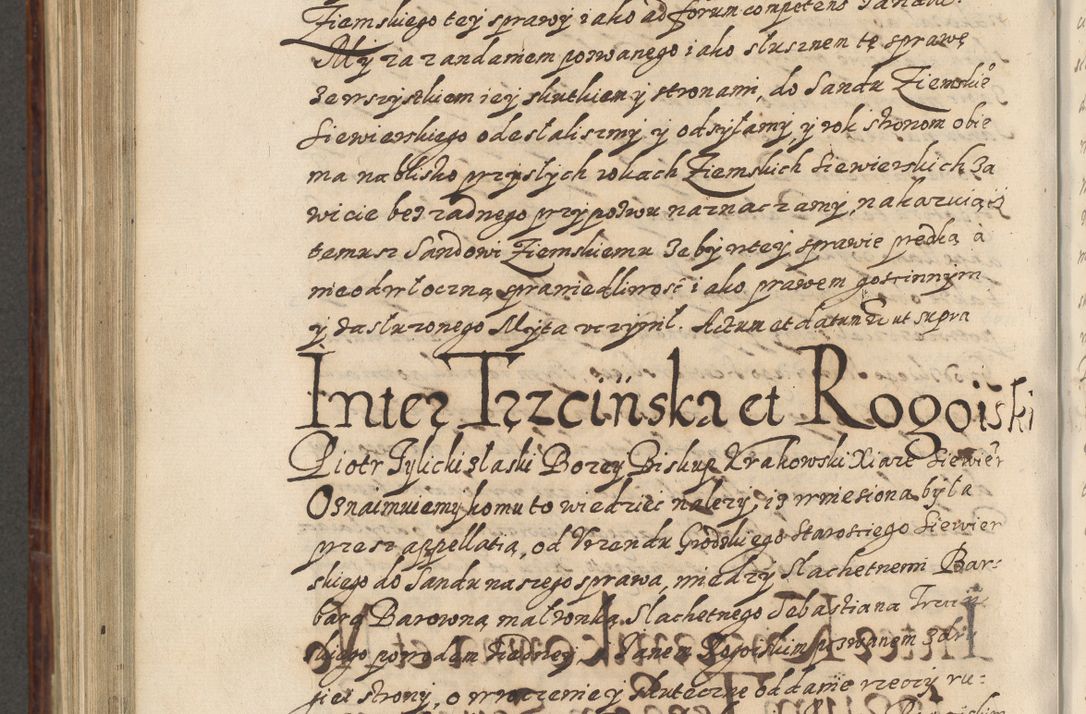 Ziemskiego tey sprawy iako ad forum competens Sandu.
My za zandaniem pozwanego iako slusznem tę sprawę
ze wszystkiem iey skutkiem y stronami, do Sandu Ziemskie°
Siewierskiego odesłaliszmy, y odsyłamy, y rok stronom obie
ma na blisko przyszłych rokach Ziemskich Siewierskich za
wicie bez zadnego przypozwu naznaczamy, nakazuiącz
temusz Sandowi Ziemskiemu zeby w tey sprawie prędką a
nieodwłoczną sprawiedliwosć iako prawem gościnnym
y zasluzonego Myta vczynil. Actum et datum ut supra
Inter Trzcińska et Rogoiski
Piotr Tylicki z łaski Bozey Biskup Krakowski Xiaze Siewier
Oznaimuiemy komu to wiedziec nalezy, iz wniesiona była
przesz appellatią, od Vrzendu Grodzkiego Starosciego Siewier
skiego do Sandu naszego sprawa, miedzy Slachetnemi Bar:
barą Barowną malzonką Slachetnego Sebastiana Trzcin
skiego powodem z iedney a Janem Rogoiskim pozwanem z dru
giei strony, o wroczenie y skuteczne oddanie rzeczy ru: